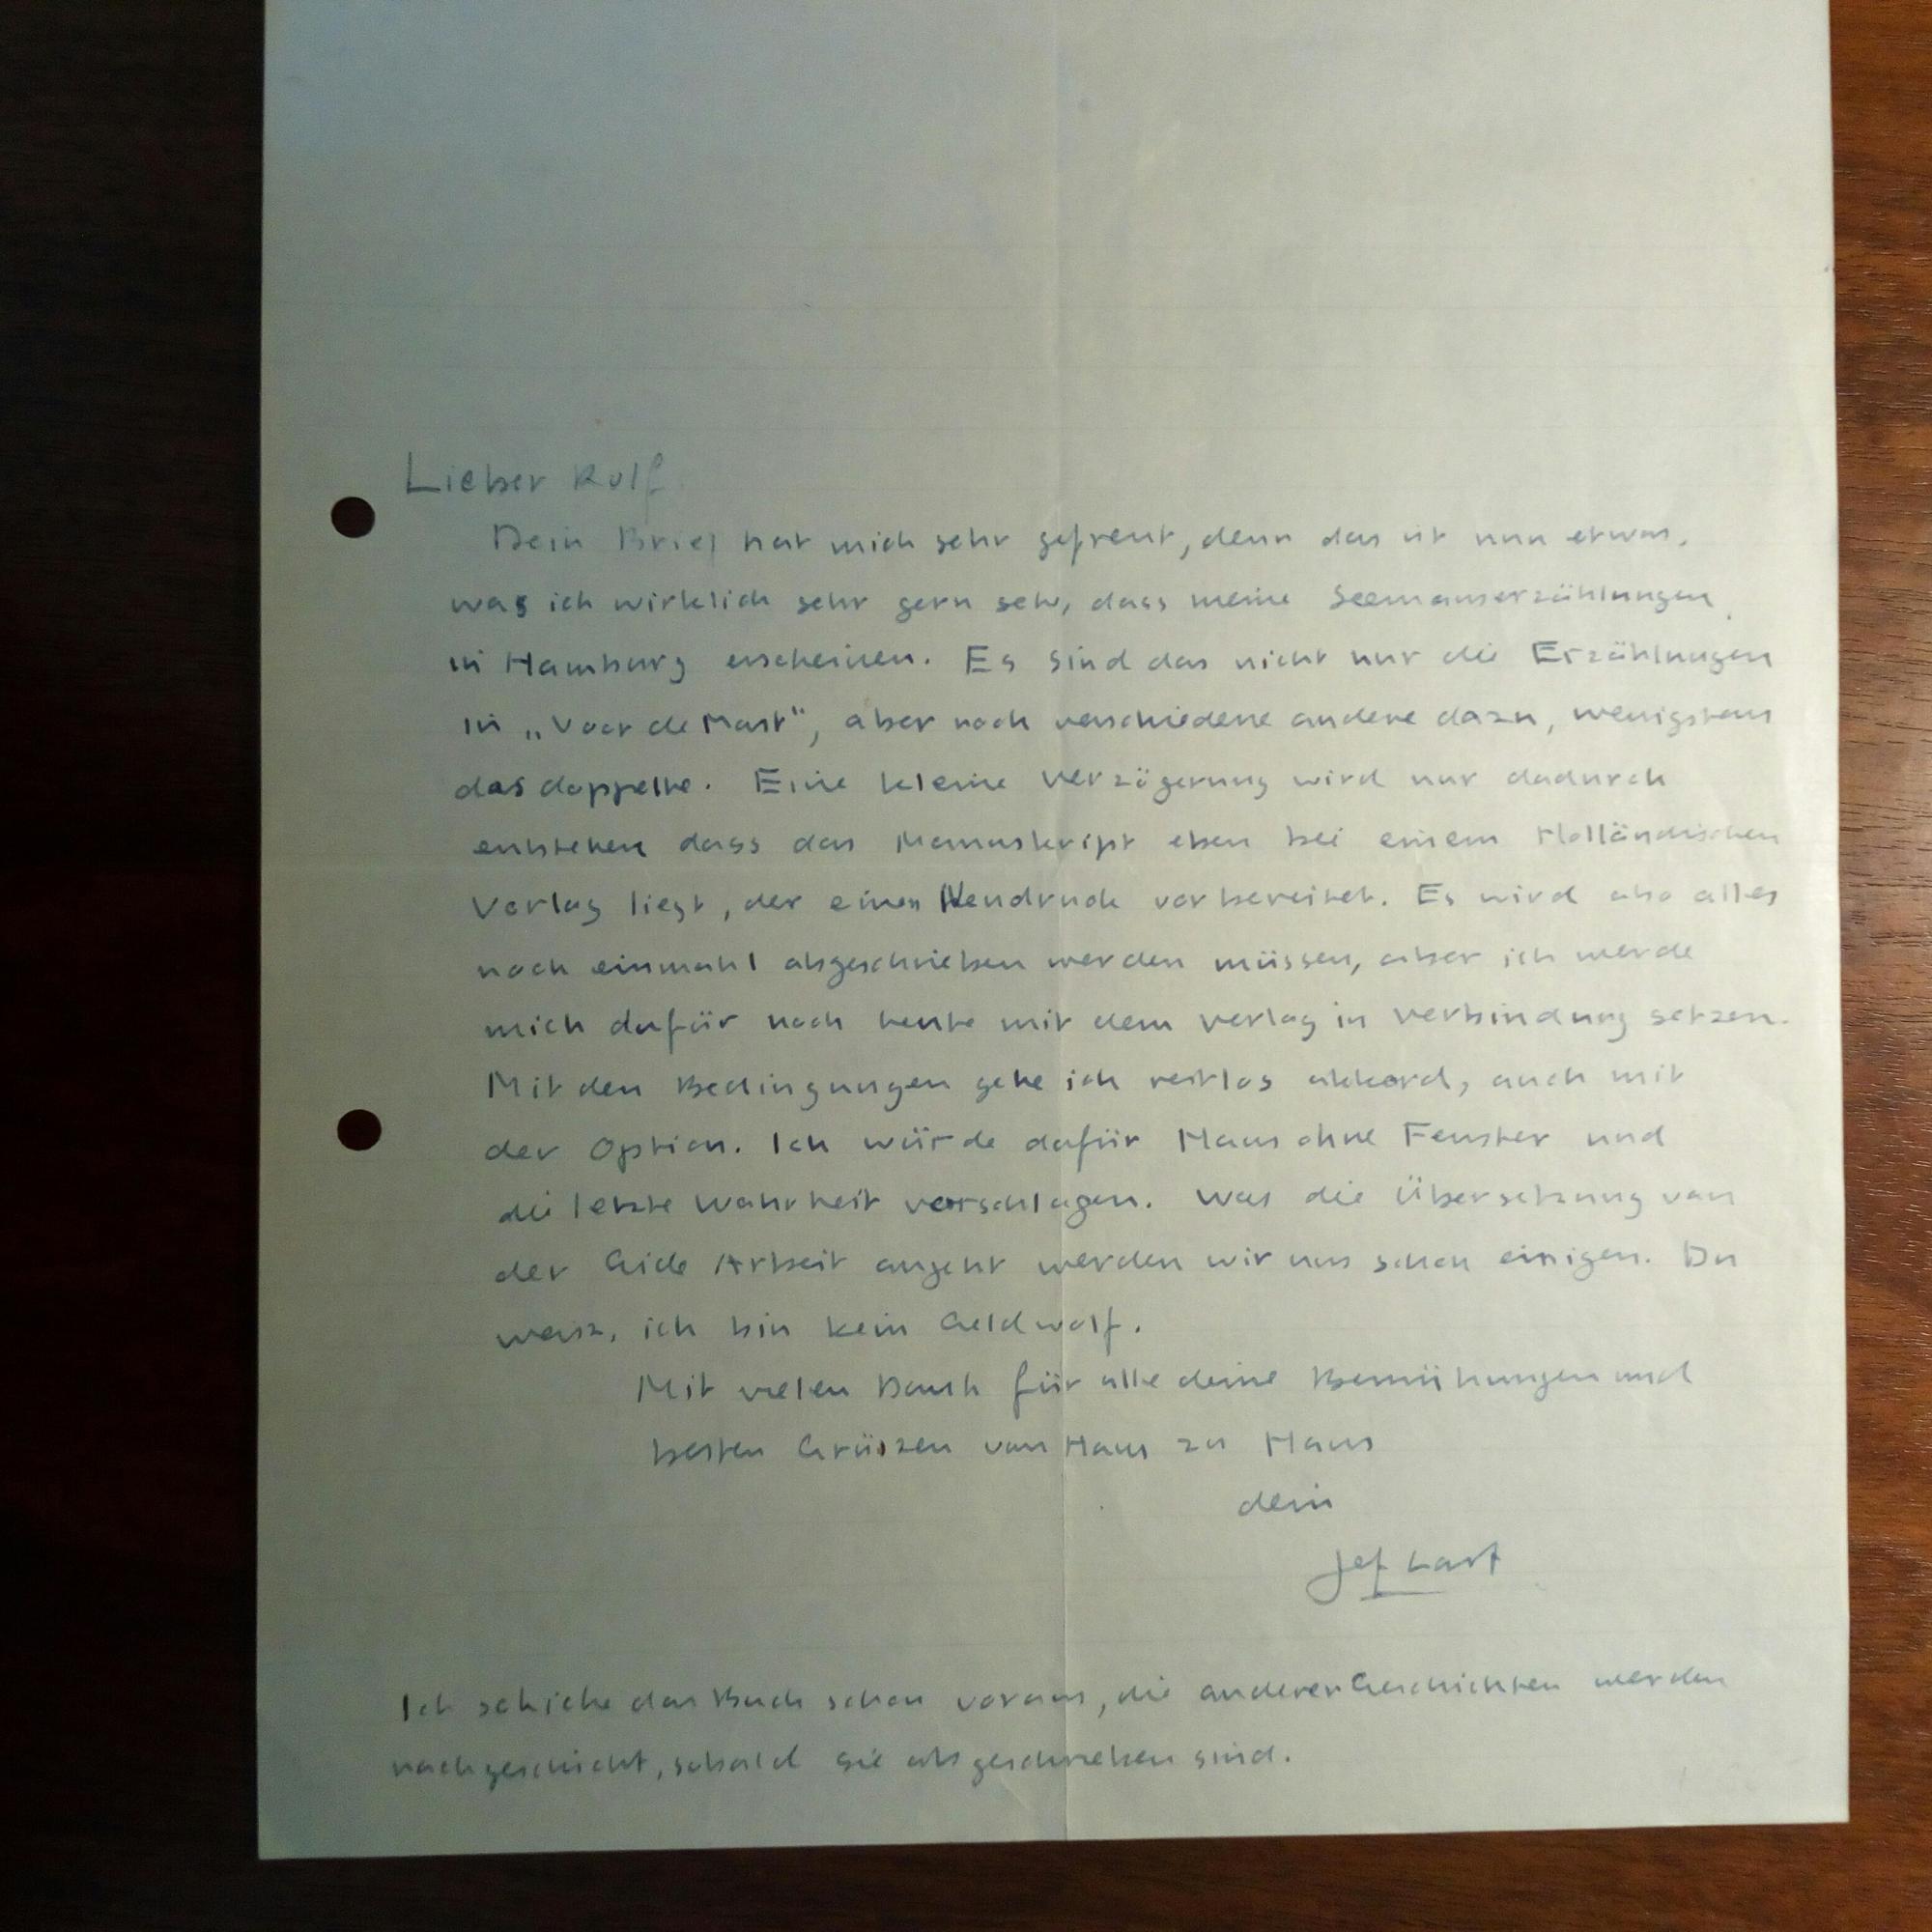 Lieber Rolf.
Dein Brief hat mich sehr gefreut, denn das ist nun etwas,
was ich wirklich sehr gern seh, dass meine Seemanserzählungen
in Hamburg erscheinen. Es sind das nicht nur die Erzählungen
in „Voor de Mast", aber noch verschiedene andere dazu, wenigstens
das doppelte. Eine kleine Verzögerung wird nur dadurch
entstehen dass das Manuskript eben bei einem Holländischen
Verlag liegt, der einen Neudruck vorbereitet. Es wird also alles
noch einmahl abgeschrieben werden müssen, aber ich werde
mich dafür noch heute mit dem Verlag in Verbindung setzen.
Mit den Bedingungen gehe ich restlos akkord, auch mit
der Option. Ich würde dafür Haus ohne Fenster und
die letzte Wahrheit vorschlagen. Was die Übersetzung von
der Gide Arbeit angeht werden wir uns schon einigen. Du
weisz, ich bin kein Geldwolf.
Mit vielen Dank für alle deine Bemühungen und
besten Grüszen von Haus zu Haus
dein
Jef Last
Ich schicke das Buch schon voraus, die anderen Geschichten werden
nachgeschickt, sobald sie abgeschrieben sind.